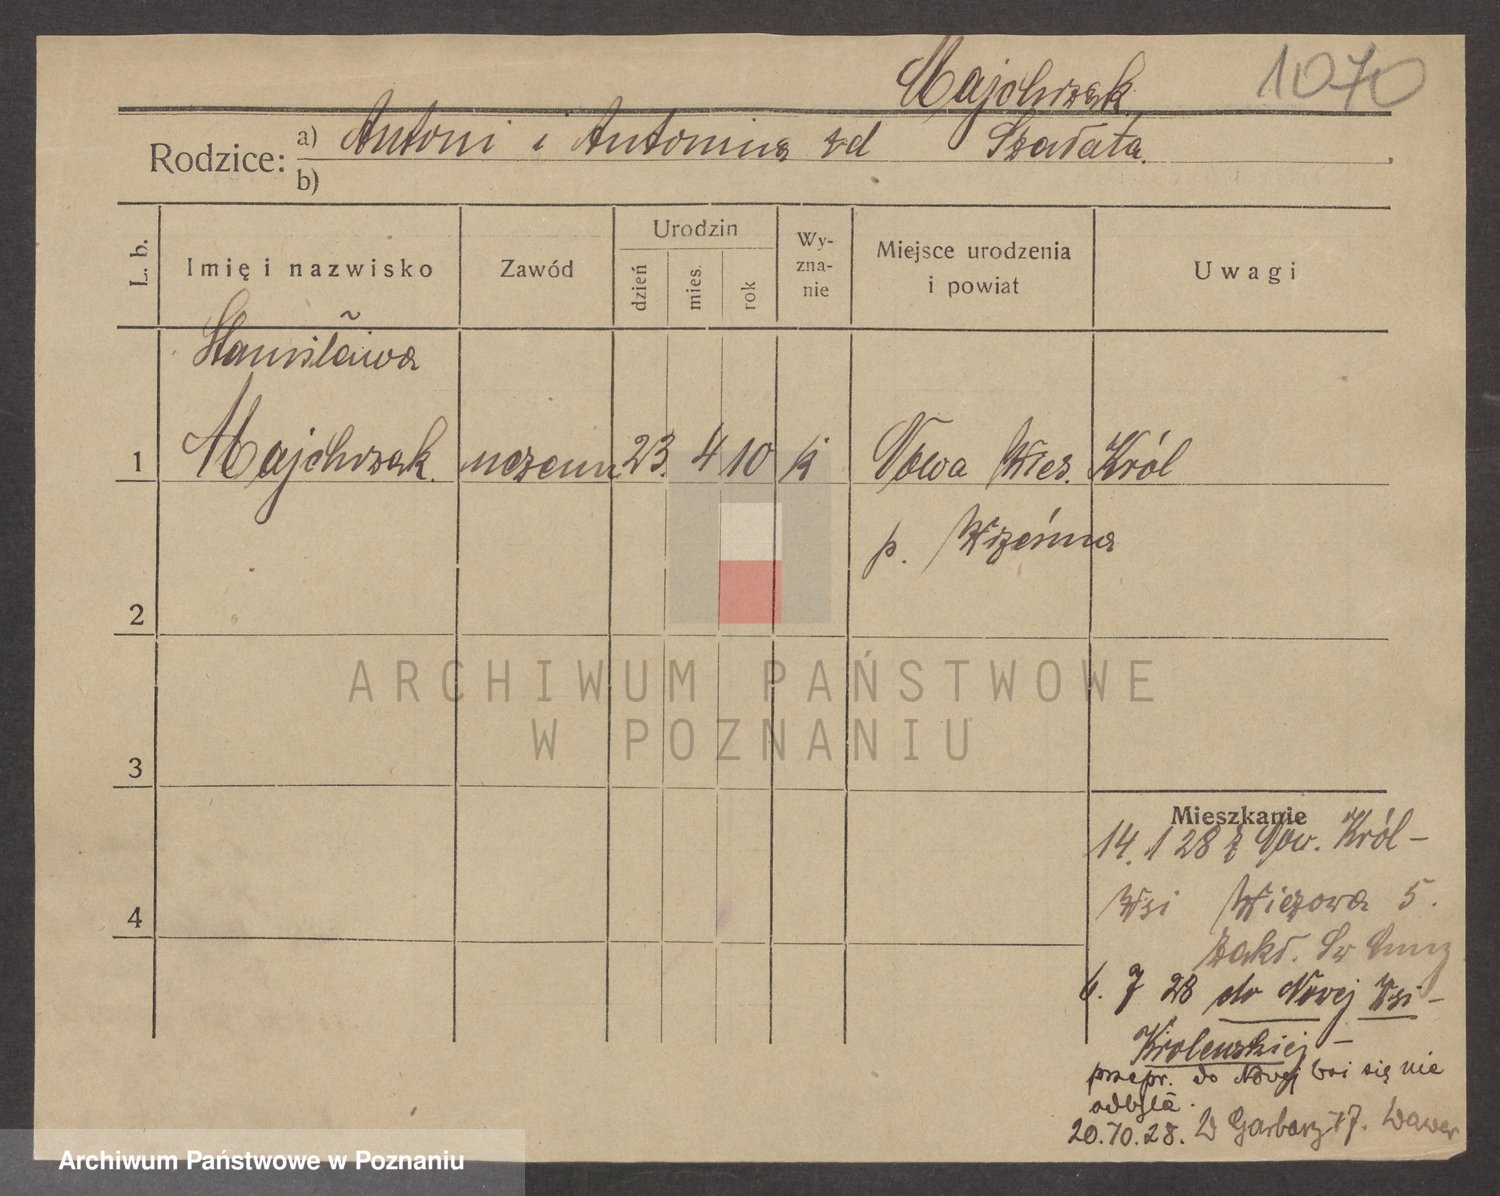 1070
Majchrzak
Rodzice: a) Antoni i Antonina zd Szadata
b)
L. b. Imię i nazwisko Zawód Urodzin dzień mies. rok Wyznanie Miejsce urodzenia i powiat Uwagi
Stanisława
1 Majchrzak uczenn 23. 4 10 k Nowa Wies. Król
p. Września
2
ARCHIWUM PAŃSTWOWE
W POZNANIU
3
Mieszkanie
14. 1 28 z Now. Król-
4
Wsi Wieżowa 5.
zakł. Sw
6. 7 28 do Nowej Wsi-
Krolewskiej-
przepr. do Nowej Wsi się nie
odbyła.
20.10.28. W Garbarz 17. Wawer
Archiwum Państwowe w Poznaniu